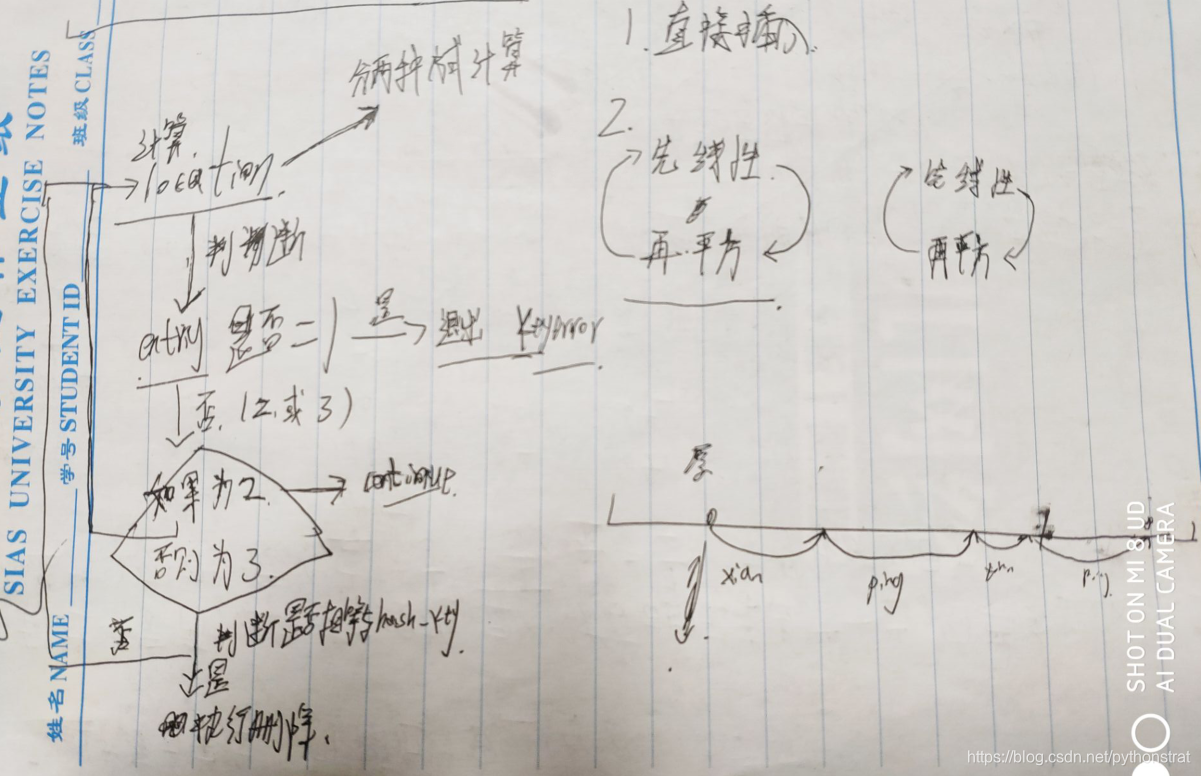 SIAS UNIVERSITY EXERCISE NOTES
班级 CLASS
学号 STUDENT ID
姓名 NAME
分两种 计算
计算
location
判断
entry 是否=1 是 退出 Keyerror
否 (2.或3)
如果为2 continue
否则为3
否
判断是否相等hash_key
是
执行删除
1.直接插入
2.
先线性
再平方
先线性
再平方
xian
ping
xian
ping
SHOT ON MI 8 UD
AI DUAL CAMERA
https://blog.csdn.net/pythonstrat